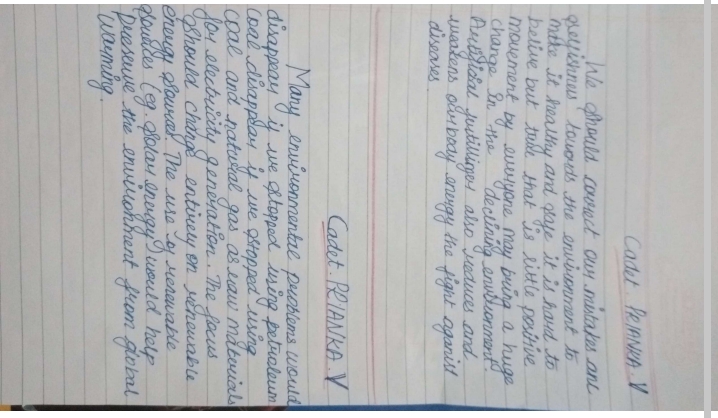 Cadet. PRIYANKA. V
We should correct our mistakes and
decisions towards the environment to
make it healthy and safe it is hard to
belive but true that is little positive
movement by everyone may bring a huge
change in the declining environment.
Artificial also reduces and
weakens our body energy the fight against
diseases.
Cadet. PRIYANKA. V
Many environmental problems would
disappear if we stopped using petroleum
coal disappear if we stopped using
coal and natural gas as raw materials
for electricity generation. The focus
should change entirely on renewable
energy sources. The use of renewable
sources (eg. solar energy) would help
preserve the environment from global
warming.